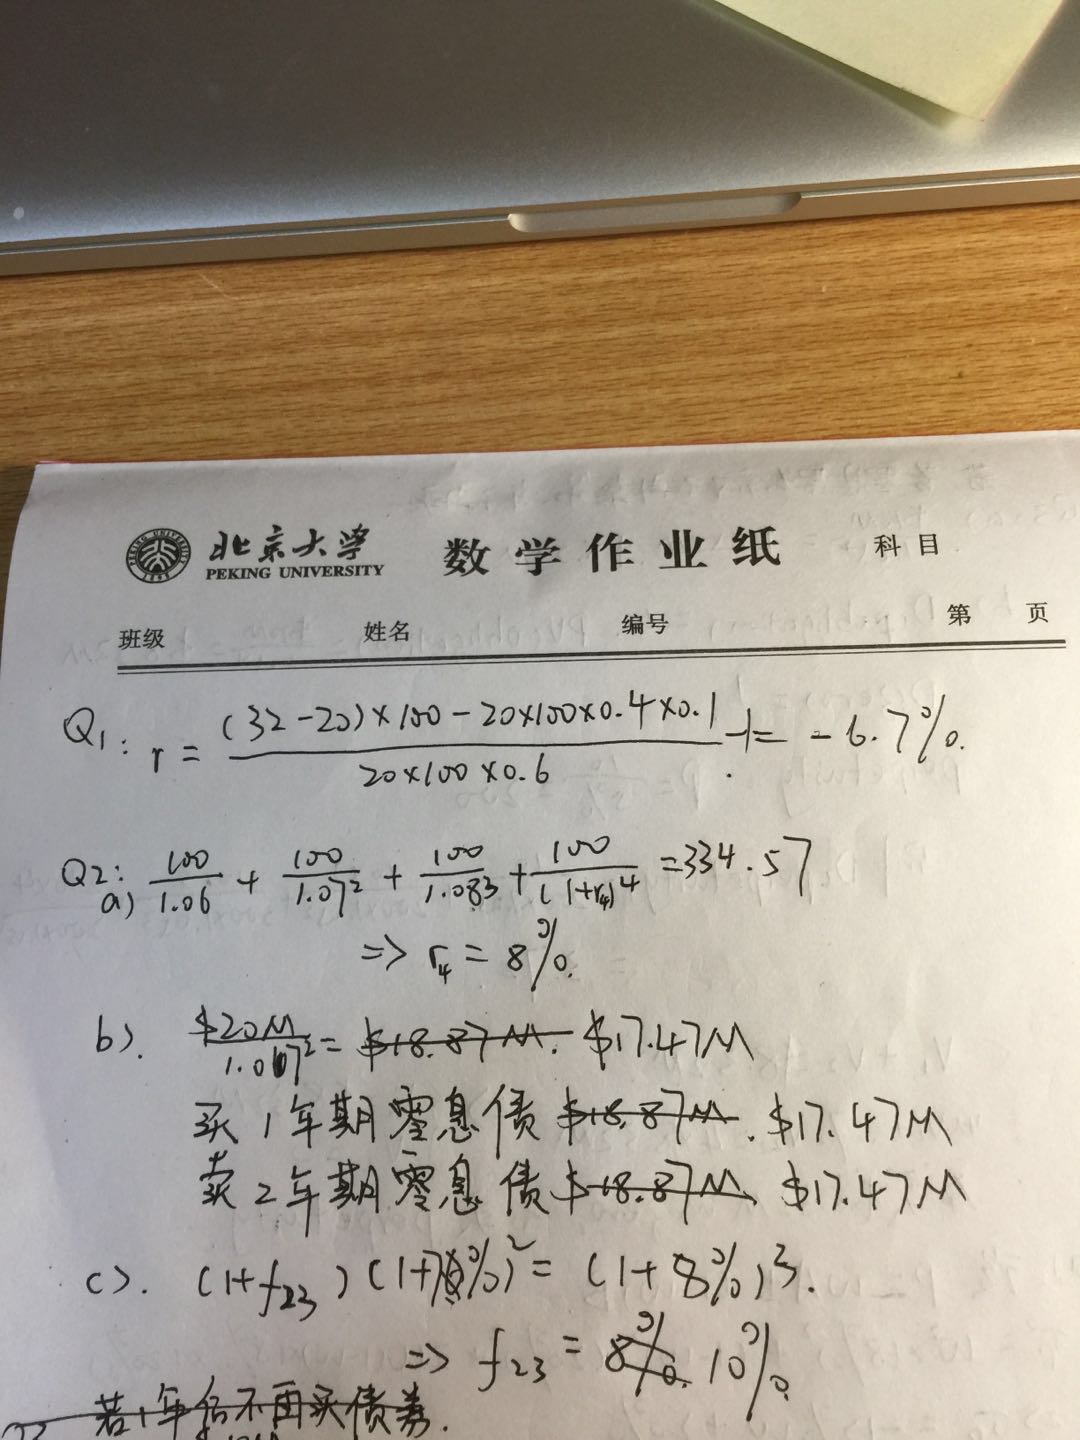 北京大学
PEKING UNIVERSITY
数学作业纸 科目
班级 姓名 编号 第 页
Q1: r = \frac{(32-20)×100-20×100×0.4×0.1}{20×100×0.6} -1 = -6.7%.
Q2:
a) \frac{100}{1.06} + \frac{100}{1.07^2} + \frac{100}{1.08^3} + \frac{100}{(1+r_4)^4} = 334.57
=> r_4 = 8%.
b). \frac{$20M}{1.07^2} = $18.87M. $17.47M
买1年期零息债 $18.87M. $17.47M
卖2年期零息债 $18.87M. $17.47M
c). (1+f_{23})(1+7%)^2 = (1+8%)^3.
=> f_{23} = 8%. 10%.
若1年后不再买债券.